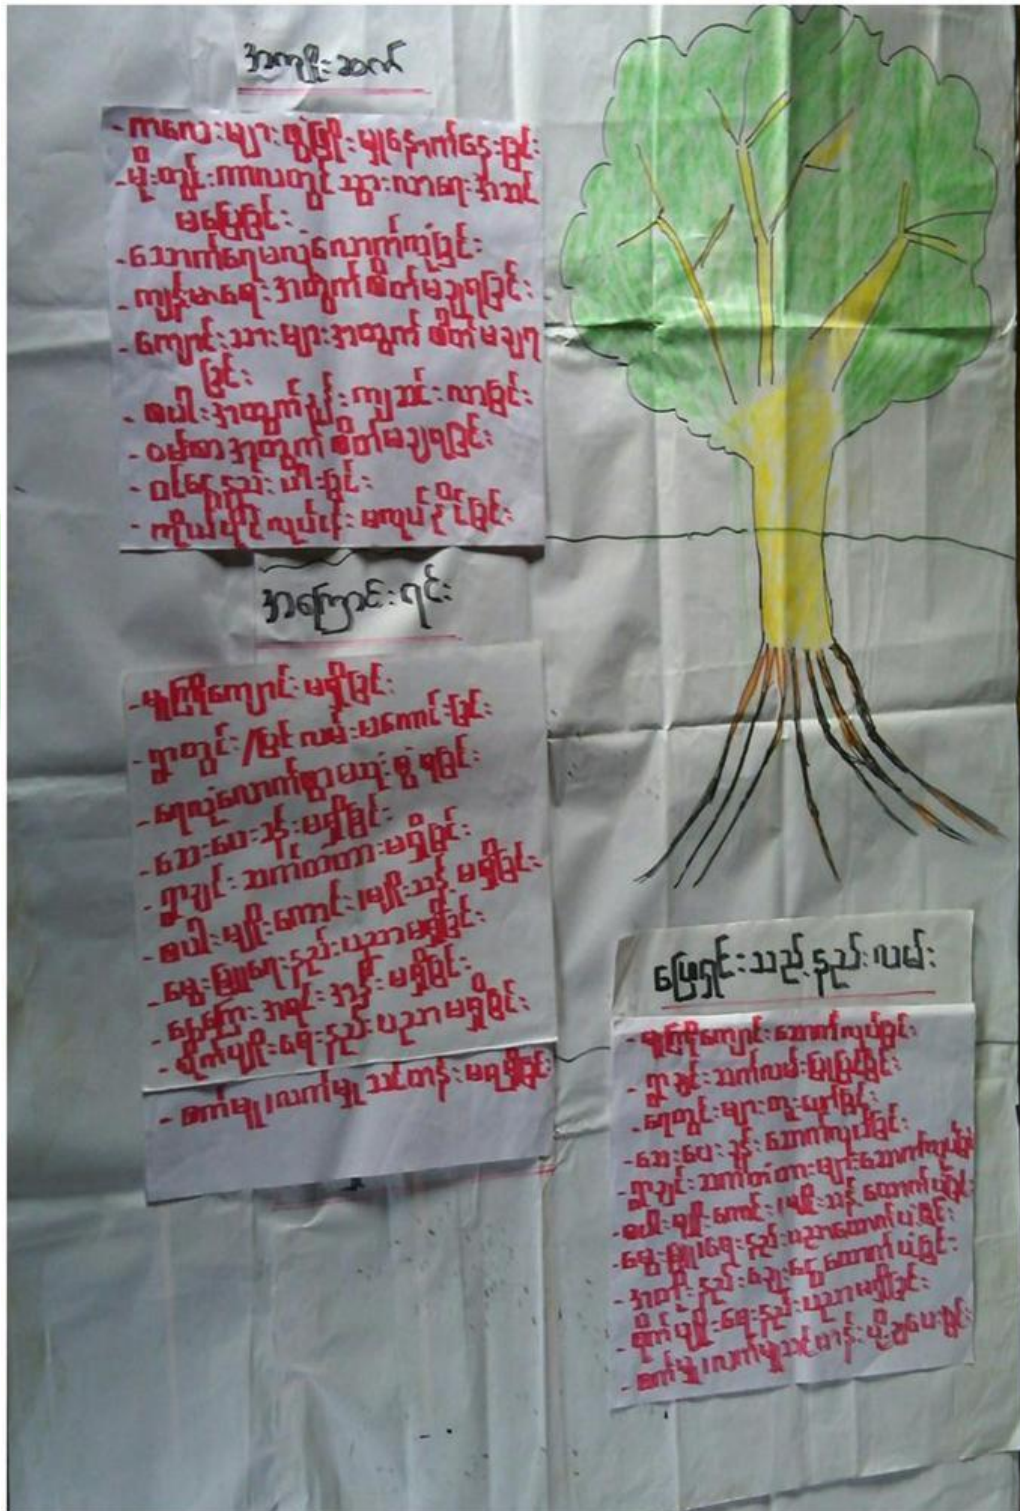 အကျိုးဆက်
- ကလေးများဖွံ့ဖြိုးမှုနှောက်နှေးခြင်း
- မိုးတွင်းကာလတွင် သွားလာရေးအဆင်
မပြေခြင်း
- သောက်ရေမလုံလောက်ခြင်း
- ကျန်းမာရေးအတွက်စိတ်မချရခြင်း
- ကျောင်းသားများအတွက် စိတ်မချရ
ခြင်း
- စပါးအထွက်နှုန်းကျဆင်းလာခြင်း
- ဝမ်းစာအတွက်စိတ်မချရခြင်း
- ဝင်ငွေနည်းပါးခြင်း
- ကိုယ်ပိုင်လုပ်ငန်းမလုပ်နိုင်ခြင်း
အကြောင်းရင်း
- မူကြိုကျောင်းမရှိခြင်း
- ရွာတွင်း/ပြင်လမ်းမကောင်းခြင်း
- ရေလုံလောက်စွာမသုံးစွဲရခြင်း
- ဆေးပေးခန်းမရှိခြင်း
- ရွာချင်းဆက်တံတားမရှိခြင်း
- စပါးမျိုးကောင်း၊မျိုးသန့်မရှိခြင်း
- မွေးမြူရေးနည်းပညာမရှိခြင်း
- ငွေကြေးအရင်းအနှီးမရှိခြင်း
- စိုက်ပျိုးရေးနည်းပညာမရှိခြင်း
- စက်မှု၊လက်မှုသင်တန်းမရရှိခြင်း
ဖြေရှင်းသည့်နည်းလမ်း
- မူကြိုကျောင်းဆောက်လုပ်ခြင်း
- ရွာချင်းဆက်လမ်းပြုပြင်ခြင်း
- ရေတွင်းများတူးဖော်ခြင်း
- ဆေးပေးခန်းဆောက်လုပ်ခြင်း
- ရွာချင်းဆက်တံတားများဆောက်လုပ်ခြင်း
- စပါးမျိုးကောင်း၊မျိုးသန့်ထောက်ပံ့ခြင်း
- မွေးမြူရေးနည်းပညာထောက်ပံ့ခြင်း
- အတိုးနည်းချေးငွေထောက်ပံ့ခြင်း
- စိုက်ပျိုးရေးနည်းပညာမရှိခြင်း
- စက်မှု၊လက်မှုသင်တန်းပို့ချပေးခြင်း